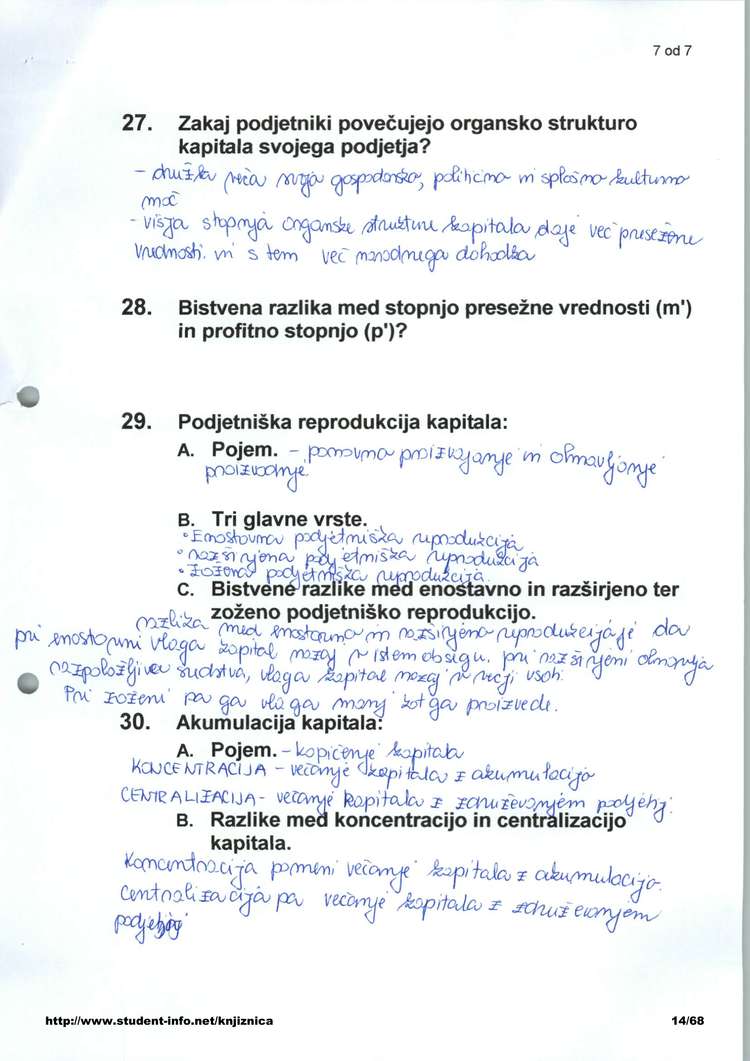 7 od 7
27. Zakaj podjetniki povečujejo organsko strukturo
kapitala svojega podjetja?
- družba veča svojo gospodarsko, politično in splošno kulturno
moč
- višja stopnja organske strukture kapitala daje več presežne
vrednosti in s tem več narodnega dohodka
28. Bistvena razlika med stopnjo presežne vrednosti (m')
in profitno stopnjo (p')?
29. Podjetniška reprodukcija kapitala:
A. Pojem. - ponovno proizvajanje in obnavljanje
proizvodnje
B. Tri glavne vrste.
• Enostavna podjetniška reprodukcija
• razširjena podjetniška reprodukcija
• zožena podjetniška reprodukcija.
C. Bistvene razlike med enostavno in razširjeno ter
zoženo podjetniško reprodukcijo.
razlika med enostavno in razširjeno reprodukcijo je da
pri enostavni vlaga kapital nazaj v istem obsegu. pri razširjeni obnavlja
razpoložljiva sredstva, vlaga kapital nazaj v večji vsoti.
Pri zoženi pa ga vlaga manj kot ga proizvede.
30. Akumulacija kapitala:
A. Pojem. - kopičenje kapitala
KONCENTRACIJA - večanje kapitala z akumulacijo
CENTRALIZACIJA - večanje kapitala z združevanjem podjetij.
B. Razlike med koncentracijo in centralizacijo
kapitala.
Koncentracija pomeni večanje kapitala z akumulacijo.
Centralizacija pa večanje kapitala z združevanjem
podjetij
http://www.student-info.net/knjiznica
14/68